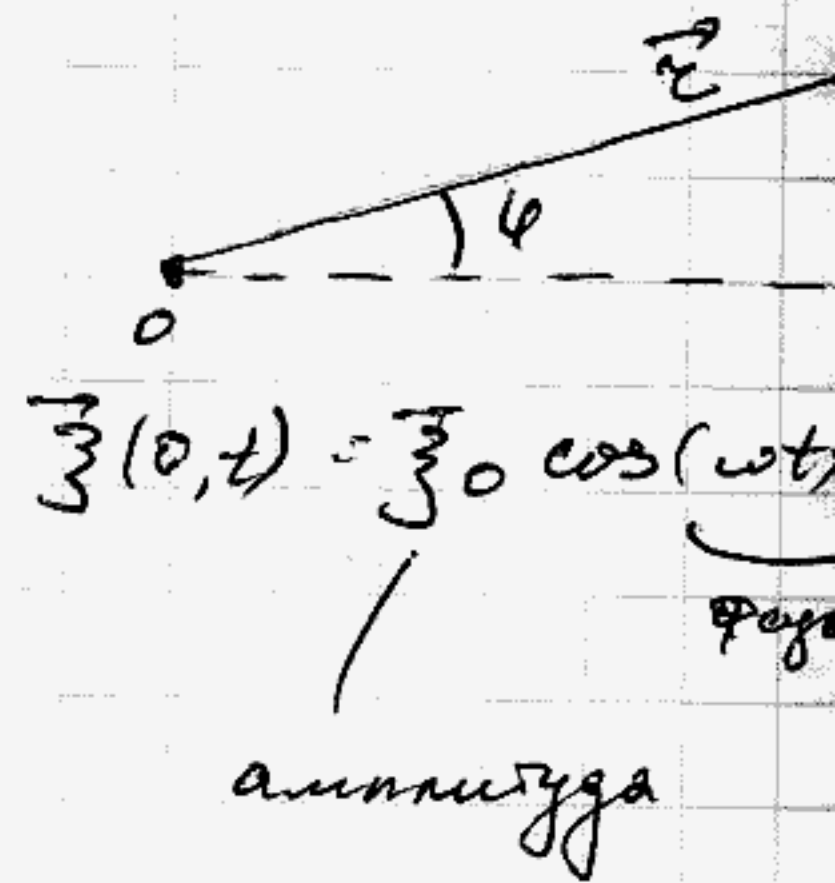 r⃗
φ
0
ξ⃗(0,t) = ξ⃗₀ cos(ωt)
амплитуда